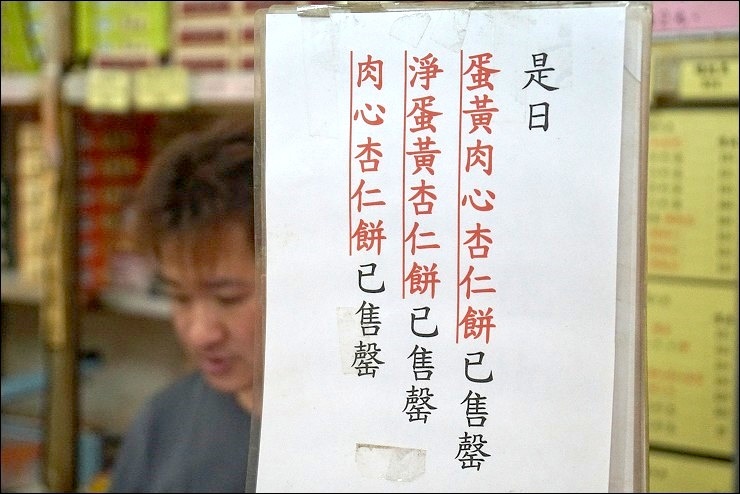 是日
蛋黃肉心杏仁餅已售罄
淨蛋黃杏仁餅已售罄
肉心杏仁餅已售罄